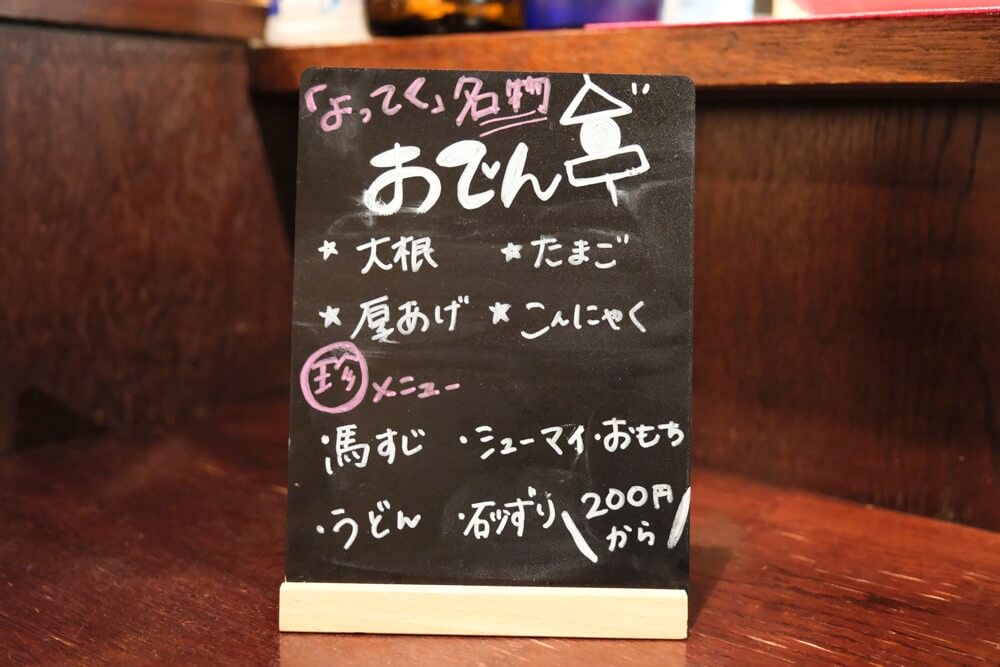 「よってく」名物
おでん
★ 大根 ★ たまご
★ 厚あげ ★ こんにゃく
珍メニュー
・馬すじ ・シューマイ ・おもち
・うどん ・砂ずり
200円から